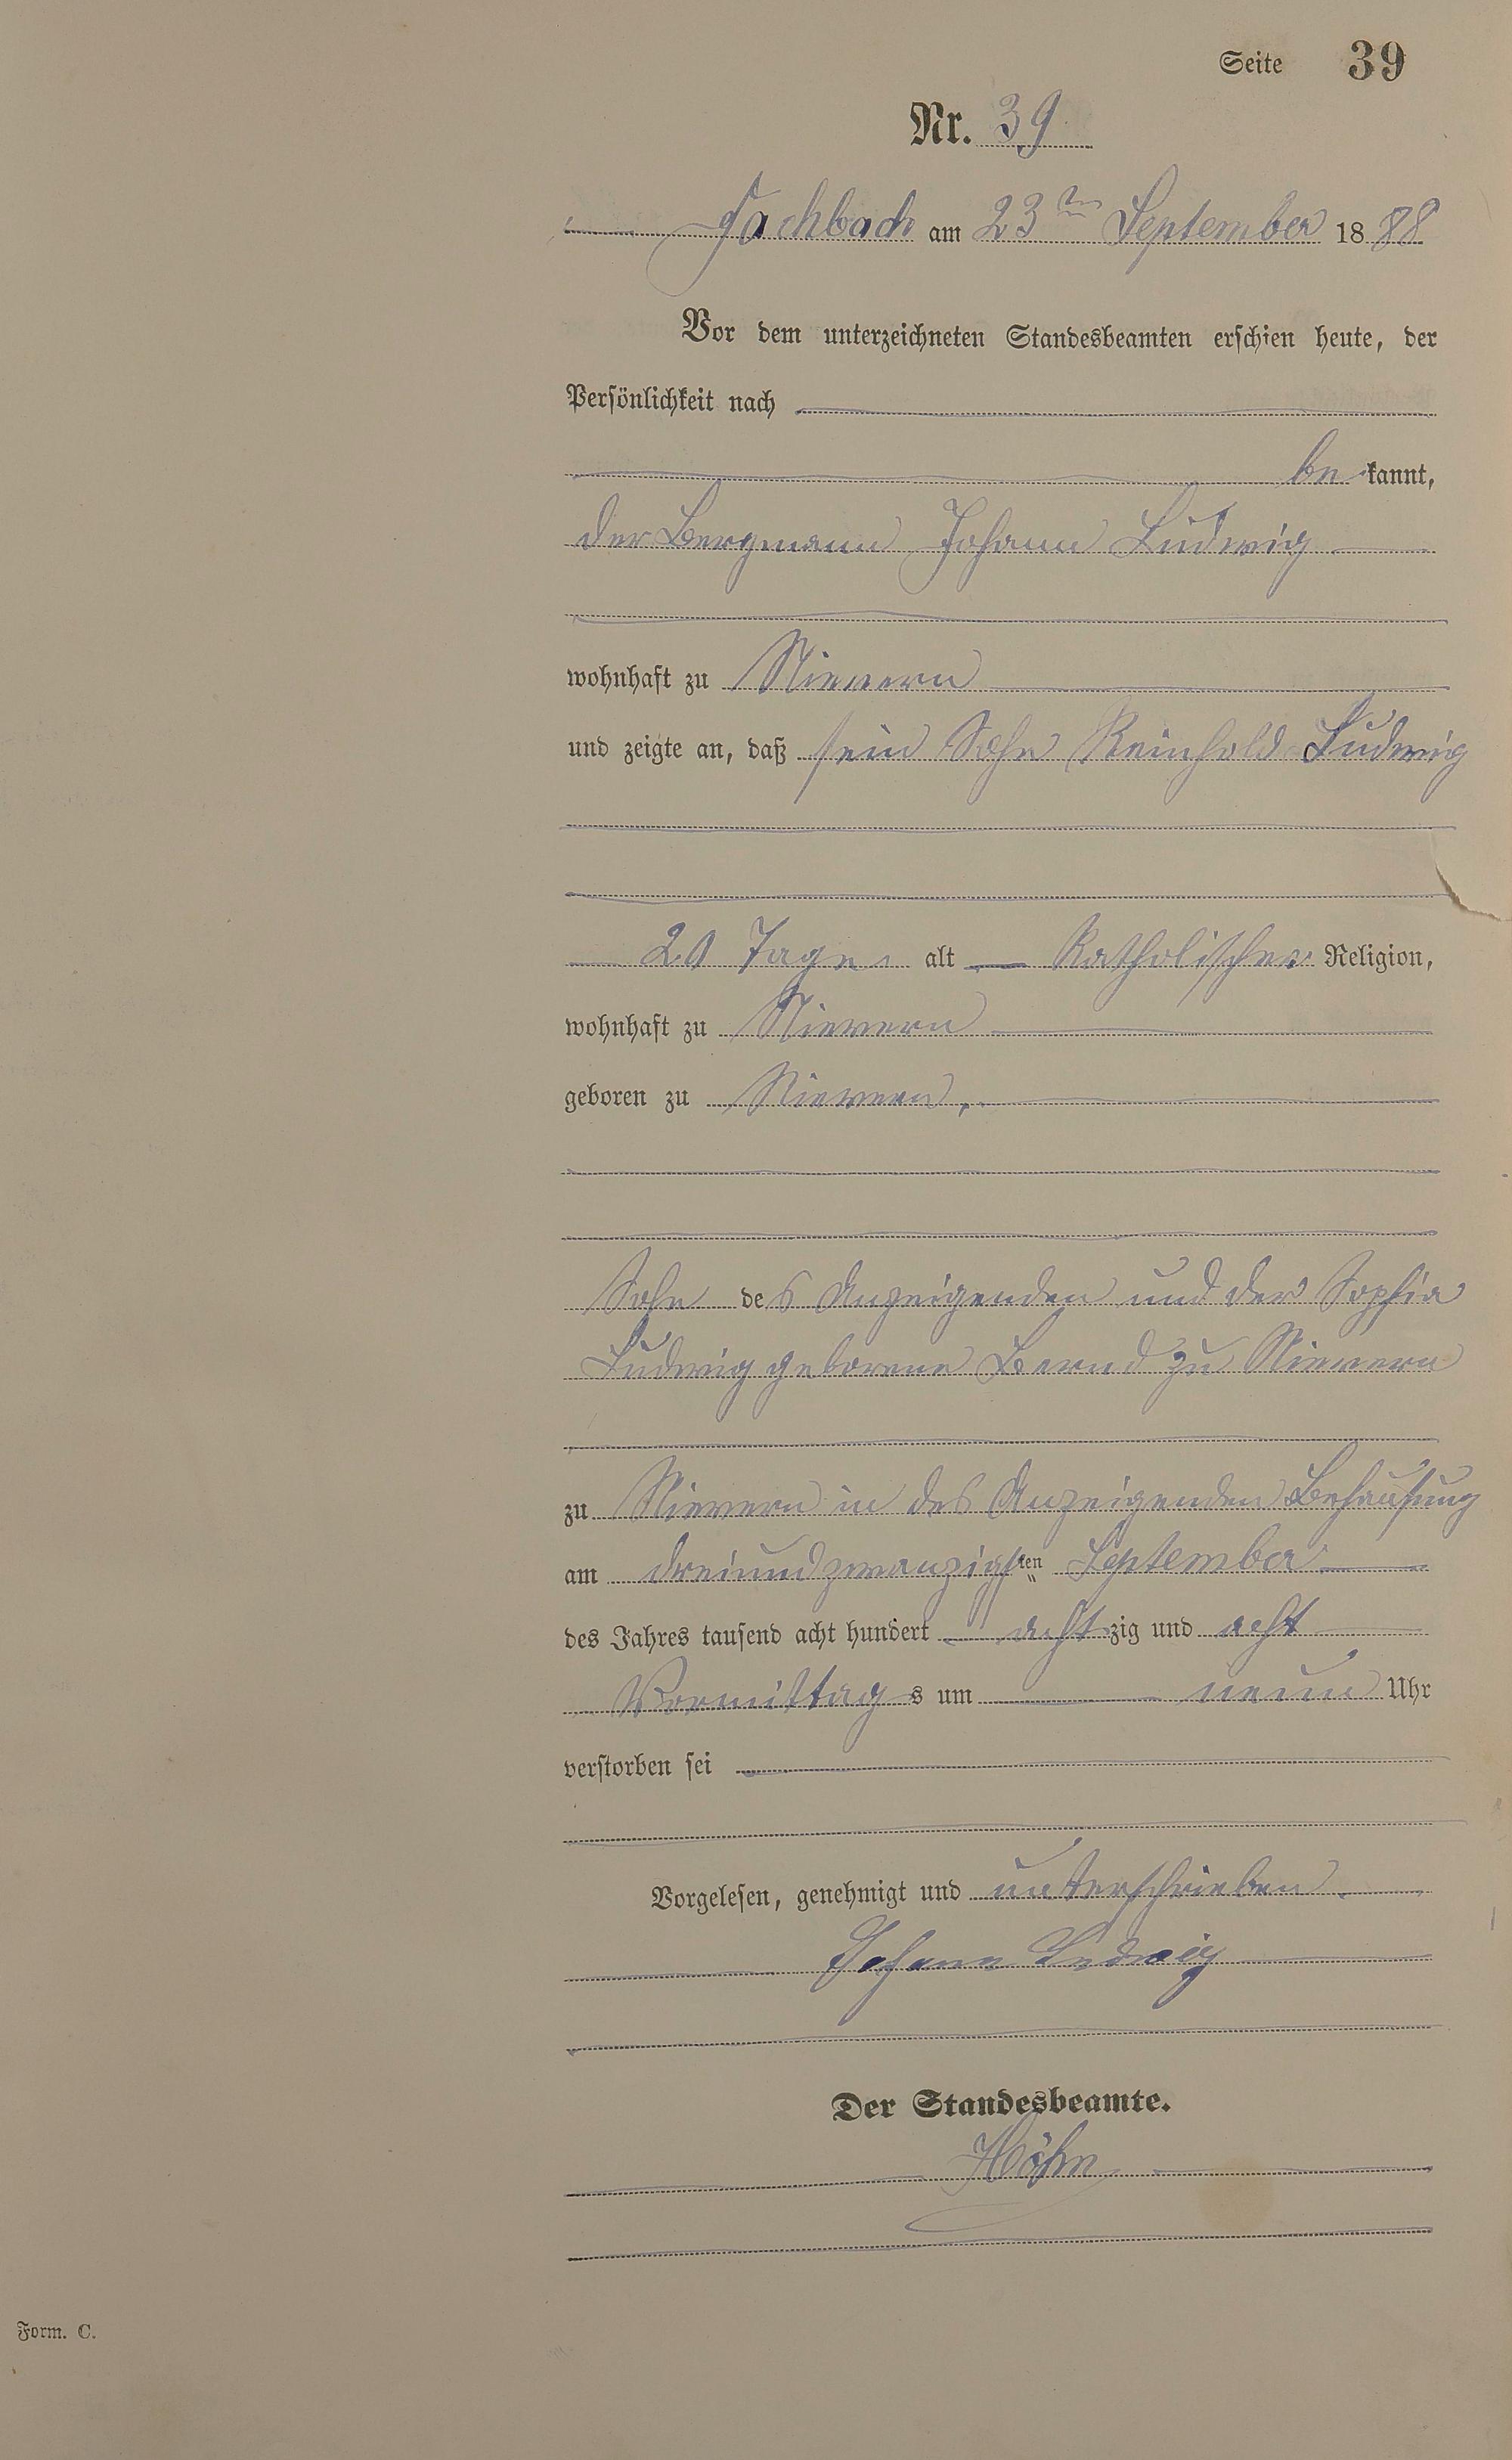 Seite 39
Nr. 39
Fachbach am 23ten September 1888
Vor dem unterzeichneten Standesbeamten erschien heute, der
Persönlichkeit nach
be kannt,
der Bergmann Johann Ludwig
wohnhaft zu Nievern
und zeigte an, daß sein Sohn Reinhold Ludwig
Tage alt katholischer Religion,
wohnhaft zu Nievern
geboren zu Nievern,
Sohn des Anzeigenden und der Sophia
Ludwig geborene Bernd zu Nievern
zu Nievern in des Anzeigenden Behausung
am dreiundzwanzigsten September
des Jahres tausend acht hundert achtzig und acht
Vormittags um neun Uhr
verstorben sei
Vorgelesen, genehmigt und unterschrieben
Johann Ludwig
Der Standesbeamte.
Höhn
Form. C.